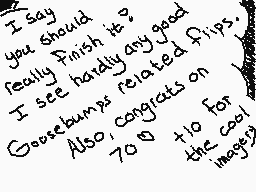 I say
you should
really finish it!
I see hardly any good
Goosebumps related flips.
Also, congrats on
70
+10 for
the cool
imagery